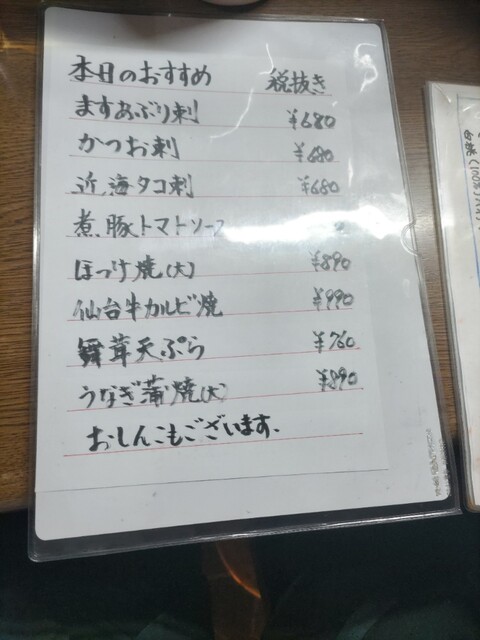 本日のおすすめ 税抜き
ますあぶり刺 ¥680
かつお刺 ¥680
近海タコ刺 ¥680
煮豚トマトソース
ほっけ焼(大) ¥890
仙台牛カルビ焼 ¥990
舞茸天ぷら ¥760
うなぎ蒲焼(大) ¥890
おしんこもございます.